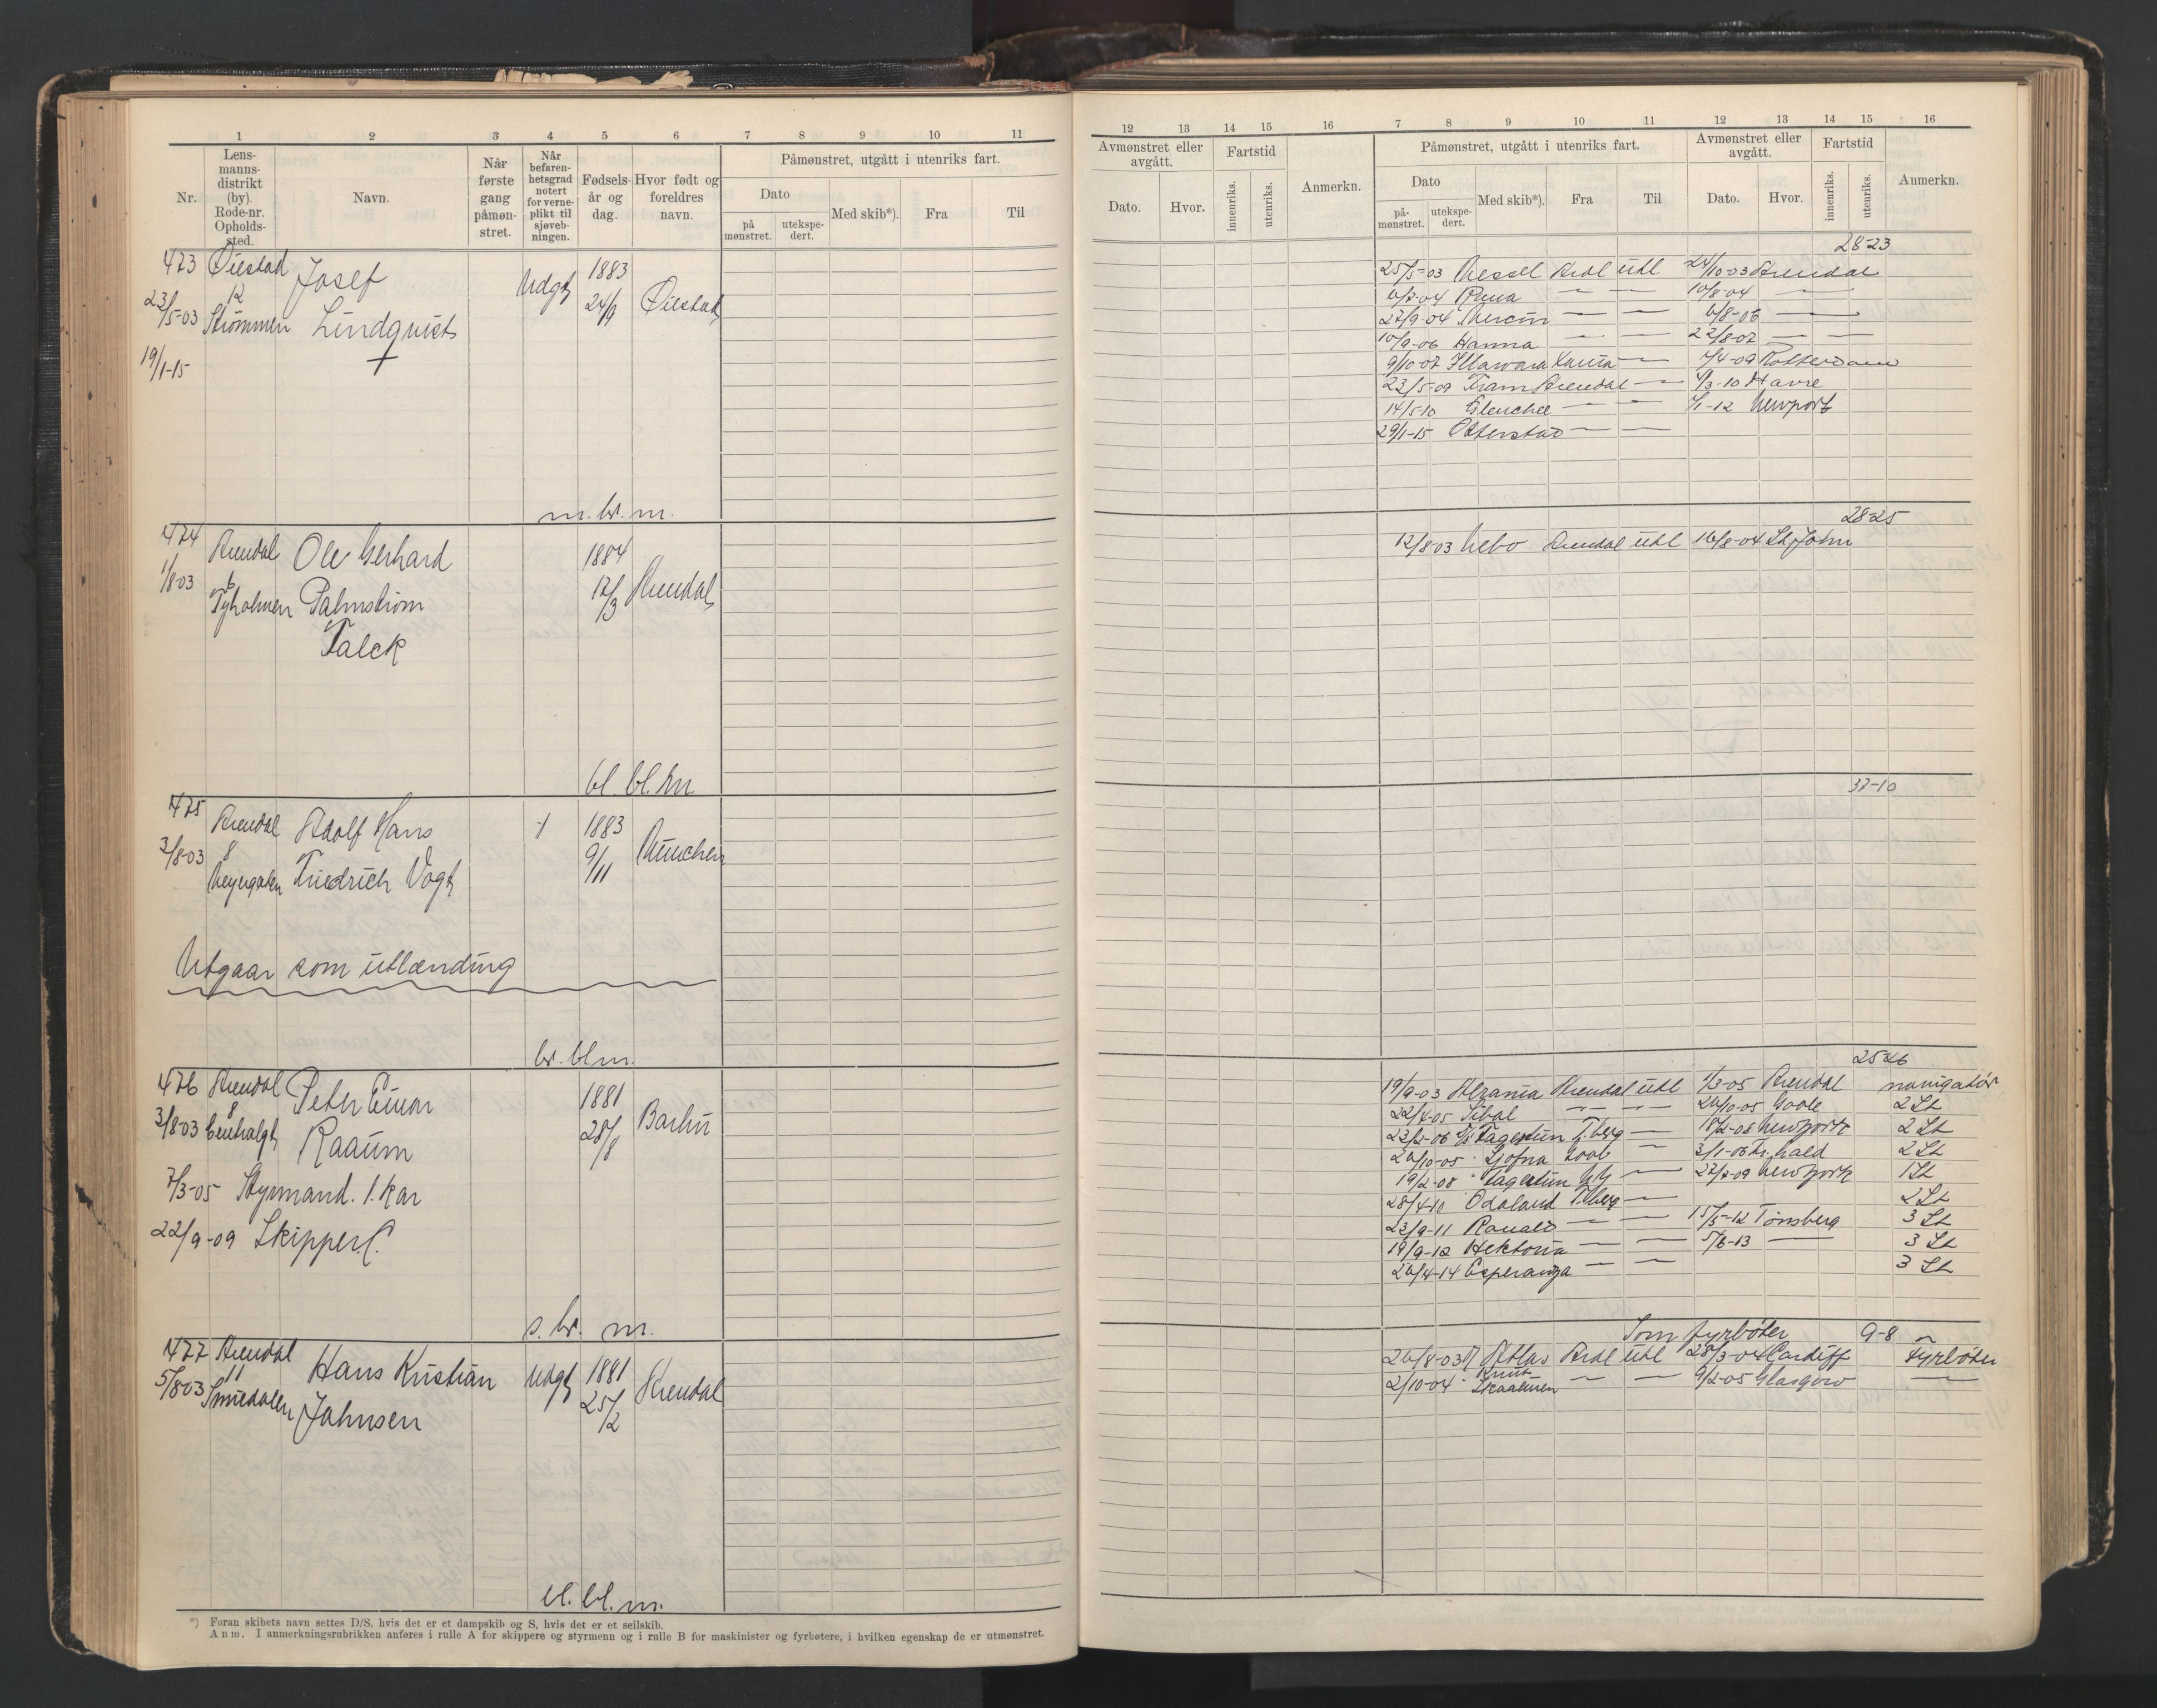 1 2 3 4 5 6 7 8 9 10 11
Nr.
Lens-
manns-
distrikt
(by).
Rode-nr.
Opholds-
sted.
Navn.
Når
første
gang
påmøn-
stret.
Når
befaren-
hetsgrad
notert
for verne-
plikt til
sjøveb-
ningen.
Fødsels-
år og
dag.
Hvor født og
foreldres
navn.
Påmønstret, utgått i utenriks fart.
Dato
på
mønstret.
utekspe-
dert.
Med skib*).
Fra
Til
473 Øiestad Josef Udgt 1883
23/5-03 12 24/9 Øiestad
Strømmen Lindqvist
19/1-15 +
m. br. m.
474 Arendal Ole Gerhard 1884
1/8-03 6 12/3 Arendal
Tyholmen Palmstrøm
Falck
bl. bl. m.
475 Arendal Adolf Hans 1883
3/8-03 8 9/11 München
Friedrich Vogt
Utgaar som utlænding
br. bl. m.
476 Arendal Peter Einar 1881
3/8-03 8 28/8 Barbu
Centralgt Raaum
7/3-05 Styrmand. 1. kar
22/9-09 Skipper C.
s. br. m.
477 Arendal Hans Kristian Udgt 1881
5/8-03 11 25/2 Arendal
Smedalen Johnsen
bl. bl. m.
*) Foran skibets navn settes D/S, hvis det er et dampskib og S, hvis det er et seilskib.
Anm. I anmerkningsrubrikken anføres i rulle A for skippere og styrmenn og i rulle B for maskinister og fyrbøtere, i hvilken egenskap de er utmønstret.
12 13 14 15 16 7 8 9 10 11 12 13 14 15 16
Avmønstret eller
avgått.
Dato.
Hvor.
Fartstid
innenriks.
utenriks.
Anmerkn.
Påmønstret, utgått i utenriks fart.
Dato
på-
mønstret.
utekspe-
dert.
Med skib*).
Fra
Til
Avmønstret eller
avgått.
Dato.
Hvor.
Fartstid
innenriks.
utenriks.
Anmerkn.
28-23
25/5-03 Nessel Ardl Udl 24/10-03 Arendal
— — 10/8-04 —
22/9-04 — — 6/8-06 —
10/9-06 Hanna — — 22/8-07 — —
9/10-07 Illawara Larvia — 7/4-09 Rotterdam
23/5-09 Fram Arendal — 4/3-10 Havre
14/5-10 — — 5/1-12 Newport
29/1-15 Otterstad — —
28-25
12/8-03 Nebo Arendal Udl 16/8-04 St John
37-10
25-26
19/9-03 Arendal Udl 7/3-05 Arendal navigatør
22/4-05 Sibal — — — 26/10-05 Goole 2 St
23/2-06 Fagertun T.berg — 18/2-08 Newport 2 St
26/10-05 Sjofna Goole — 3/1-06 Fr.hald 2 St
19/2-08 Fagertun — 22/2-09 Newport 1 St
28/4-10 Odaland T.berg — 2 St
23/9-11 Ronald — — 15/5-12 Tønsberg 3 St
19/9-12 Hektoria — — 5/6-13 — 3 St
26/4-14 Esperanza — — 3 St
Som fyrbøter 9-8
26/8-03 Atlas Ardl Udl 28/3-04 Cardiff Fyrbøter
2/10-04 Knut Skaaluren — — 9/2-05 Glasgow —